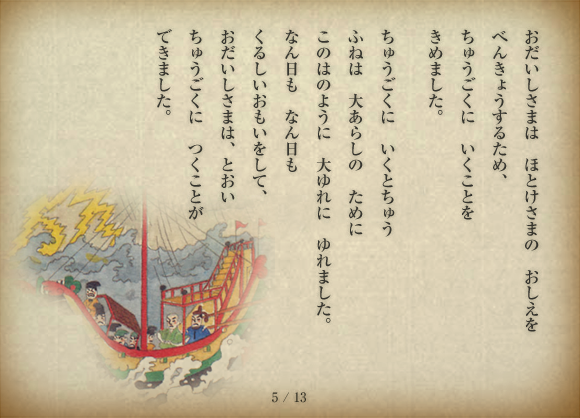 おだいしさまは　ほとけさまの　おしえを
べんきょうするため、
ちゅうごくに　いくことを
きめました。
ちゅうごくに　いくとちゅう
ふねは　大あらしの　ために
このはのように　大ゆれに　ゆれました。
なん日も　なん日も
くるしいおもいをして、
おだいしさまは、とおい
ちゅうごくに　つくことが
できました。
5 / 13